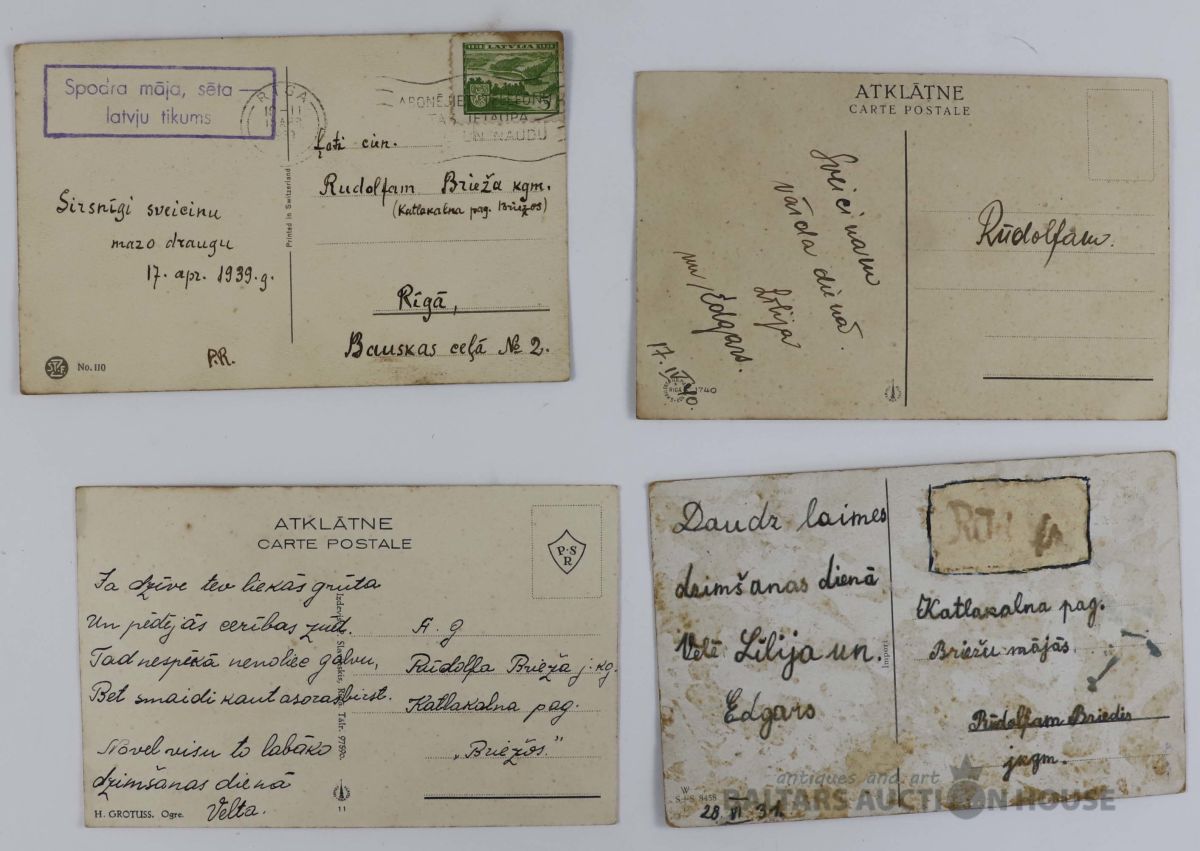 Spodra māja, sēta —
latvju tikums
RĪGA
LATVIJA
UN NAUDU
Ļoti cien.
Rudolfam Brieža kgm.
(Katlakalna pag. Briežos)
Rīgā,
Bauskas ceļā № 2.
Sirsnīgi sveicinu
mazo draugu
17. apr. 1939.g.
P.R.
No. 110
Printed in Switzerland
ATKLĀTNE
CARTE POSTALE
Sveicinam
vārda dienā.
Lilija
un Edgars.
17. IV 40.
RIGA
1740
Rūdolfam.
ATKLĀTNE
CARTE POSTALE
P·S
R
Ja dzīve tev liekās grūta
Un pēdējās cerības zūd.
Tad nespēkā nenoliec galvu,
Bet smaidi kaut asaras birst.
Novēl visu to labāko
dzimšanas dienā
Velta.
H. GROTUSS. Ogre.
11
A. g
Rūdolfa Brieža j. kg.
Katlakalna pag.
„Briežos."
Daudz laimes
dzimšanas dienā
Vēlē Līlija un.
Edgars
W
S+S 8458
28. VI 31.
Import
Katlakalna pag.
Briežu mājās.
Rūdolfam Briedis
jkgm.
antiques and art
BALTARS AUCTION HOUSE